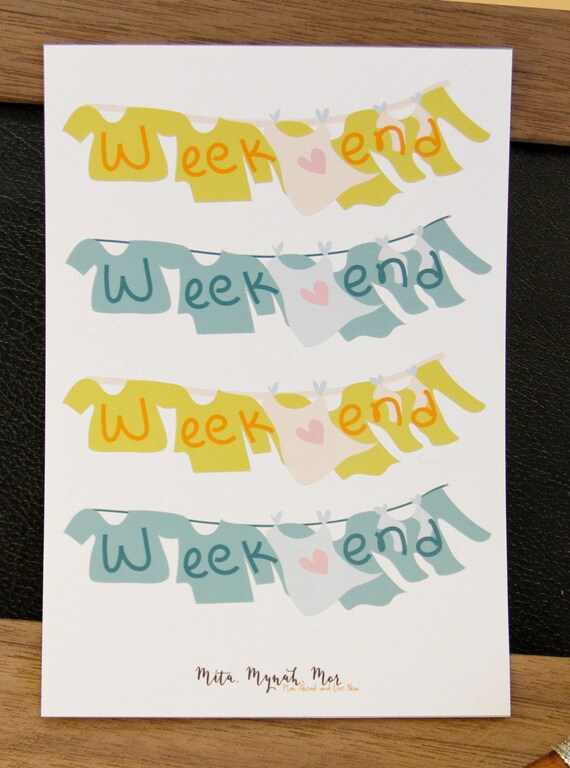 Week end
Week end
Week end
Week end
Mita. Mynah. Mor
Plan Ahead and Live Now